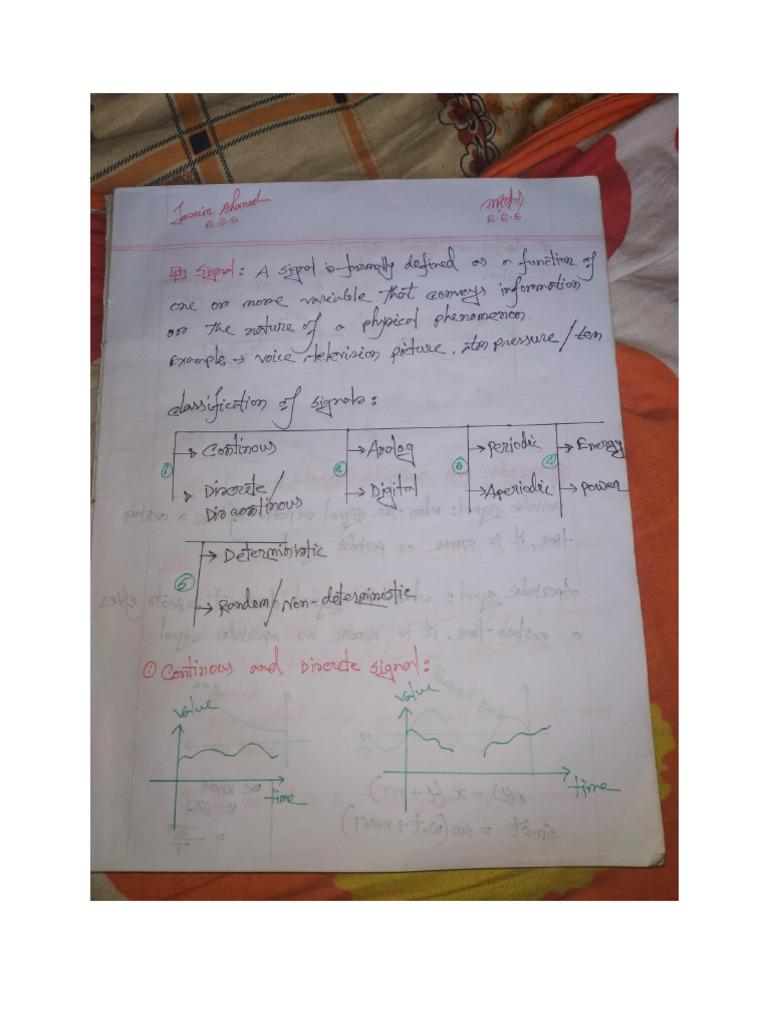 E.E.E
E.E.E
Signal: A signal is formally defined as a function of
one or more variable that conveys information
on the nature of a physical phenomenon.
Example → voice, television picture, atm pressure/tem
classification of signals:
① → Continous
→ Discrete / Discontinous
② → Analog
→ Digital
③ → Periodic
→ Aperiodic
④ → Energy
→ power
⑤ → Deterministic
→ Random/Non-deterministic
① Continous and Discrete signal:
value
time
value
time